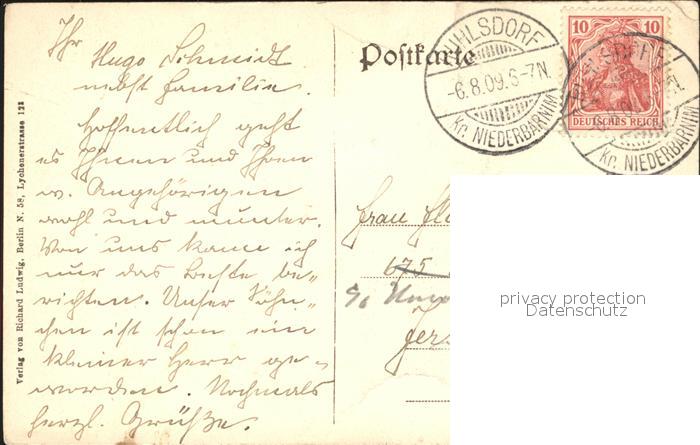 Ihr Hugo Schmidt
nebst Familie.
Hoffentlich geht
es Ihnen und Ihren
w. Angehörigen
wohl und munter.
Von uns kann ich
nur das Beste be-
richten. Unser Söhn-
chen ist schon ein
kleiner Herr ge-
worden. Nochmals
herzl. Grüße.
Verlag von Richard Ludwig, Berlin N. 58, Lychenerstrasse 122
Postkarte
UHLSDORF
-6.8.09.6-7N.
Kr. NIEDERBARNIM
10 10
DEUTSCHES REICH
Kr. NIEDERBARNIM
Frau
675
c/o
Jers
privacy protection
Datenschutz